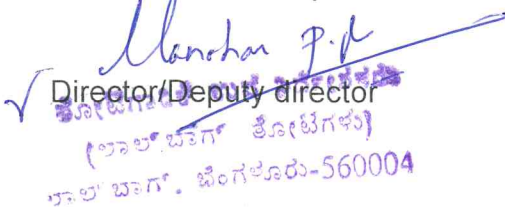 Manohar P.M
Director/Deputy director
(ಲಾಲ್‌ಬಾಗ್ ತೋಟಗಳು)
ಲಾಲ್ ಬಾಗ್. ಬೆಂಗಳೂರು-560004